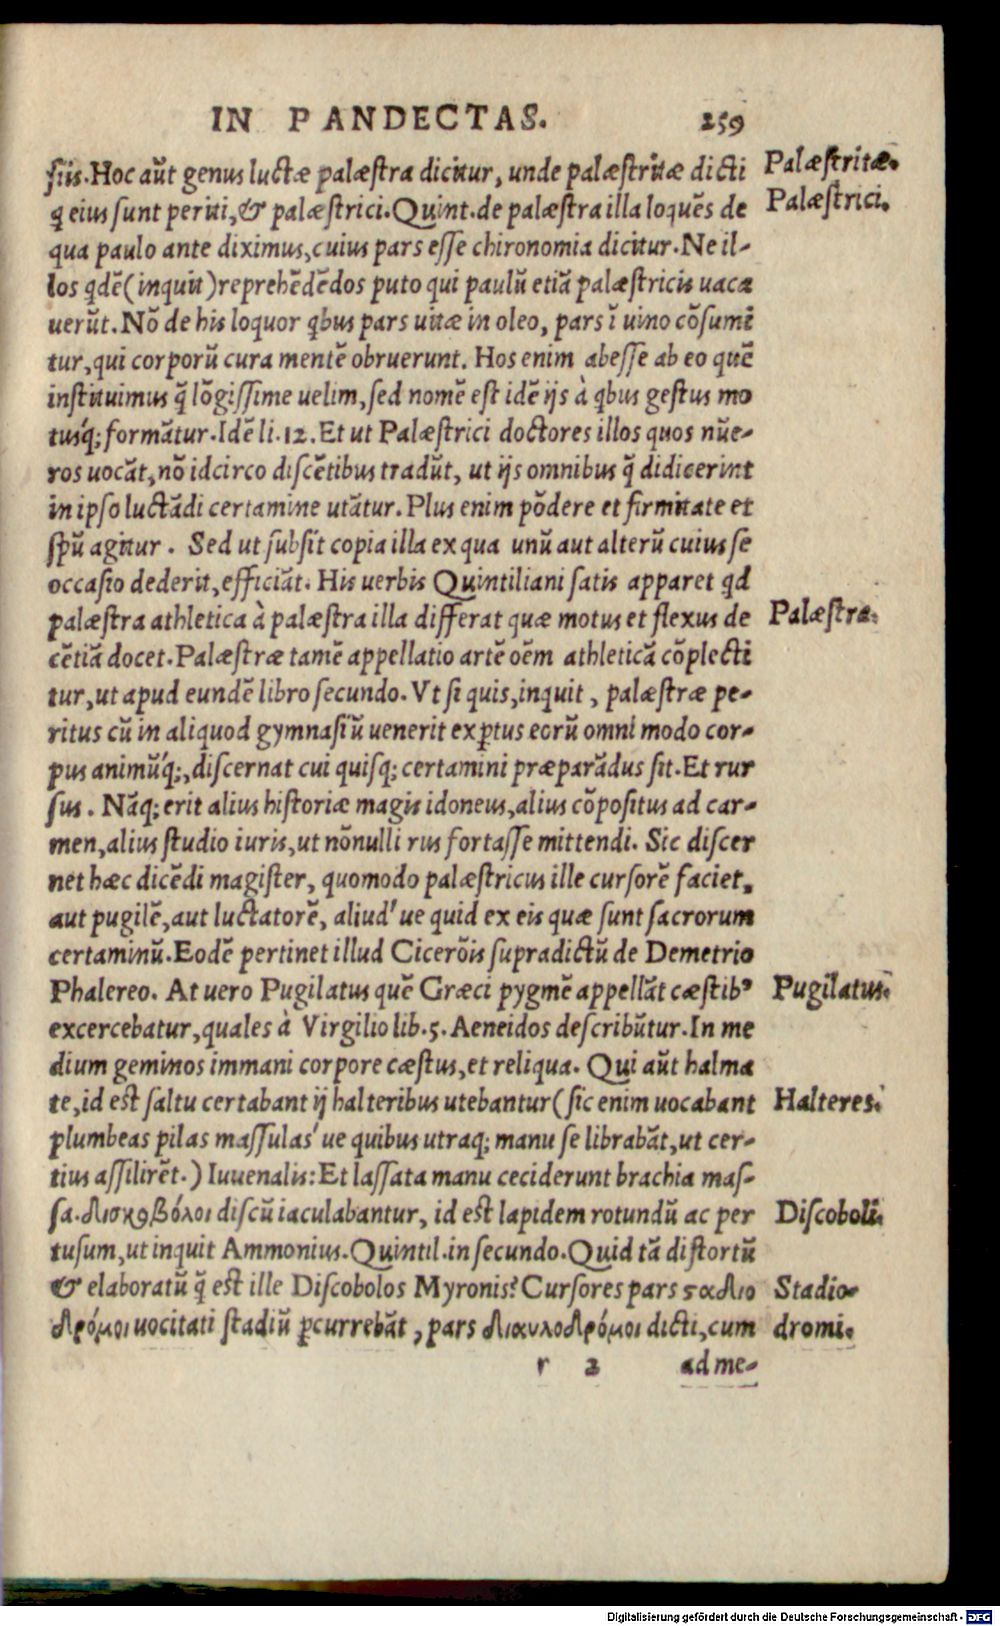 IN PANDECTAS. 259
siis. Hoc aūt genus luctæ palæstra dicitur, unde palæstritæ dicti
q̃ eius sunt periti, & palæstrici. Quint. de palæstra illa loquēs de
qua paulo ante diximus, cuius pars esse chironomia dicitur. Ne il-
los qdē (inquit) reprehēdēdos puto qui paulū etiā palæstricis uaca
uerūt. Nō de his loquor qbus pars uitæ in oleo, pars ī uino cōsumi
tur, qui corporū cura mentē obruerunt. Hos enim abesse ab eo quē
instituimus q̃ lōgissime uelim, sed nomē est idē ijs à qbus gestus mo
tusq; formātur. Idē li. 12. Et ut Palæstrici doctores illos quos nūe-
ros uocāt, nō idcirco discētibus tradūt, ut ijs omnibus q̃ didicerint
in ipso luctādi certamine utātur. Plus enim pōdere et firmitate et
spū agitur. Sed ut subsit copia illa ex qua unū aut alterū cuius se
occasio dederit, efficiāt. His uerbis Quintiliani satis apparet qd
palæstra athletica à palæstra illa differat quæ motus et flexus de
cētiā docet. Palæstræ tamē appellatio artē oēm athleticā cōplecti
tur, ut apud eundē libro secundo. Vt si quis, inquit, palæstræ pe-
ritus cū in aliquod gymnasiū uenerit exꝑtus eorū omni modo cor-
pus animūq;, discernat cui quisq; certamini præparādus sit. Et rur
sus. Nāq; erit alius historiæ magis idoneus, alius cōpositus ad car-
men, alius studio iuris, ut nōnulli rus fortasse mittendi. Sic discer
net hæc dicēdi magister, quomodo palæstricus ille cursorē faciet,
aut pugilē, aut luctatorē, aliud'ue quid ex eis quæ sunt sacrorum
certaminū. Eodē pertinet illud Cicerōis supradictū de Demetrio
Phalereo. At uero Pugilatus quē Græci pygmē appellāt cæstibꝰ
excercebatur, quales à Virgilio lib. 5. Aeneidos describūtur. In me
dium geminos immani corpore cæstus, et reliqua. Qui aūt halma
te, id est saltu certabant ij halteribus utebantur (sic enim uocabant
plumbeas pilas massulas'ue quibus utraq; manu se librabāt, ut cer-
tius assilirēt.) Iuuenalis: Et lassata manu ceciderunt brachia mas-
sa. Δισκοβόλοι discū iaculabantur, id est lapidem rotundū ac per
tusum, ut inquit Ammonius. Quintil. in secundo. Quid tā distortū
& elaboratū q̃ est ille Discobolos Myronis? Cursores pars ϛαδιο
δρόμοι uocitati stadiū ꝑcurrebāt, pars διαυλοδρόμοι dicti, cum
r 2 ad me-
Palæstritæ.
Palæstrici.
Palæstra.
Pugilatus.
Halteres.
Discoboli.
Stadio-
dromi.
Digitalisierung gefördert durch die Deutsche Forschungsgemeinschaft - DFG